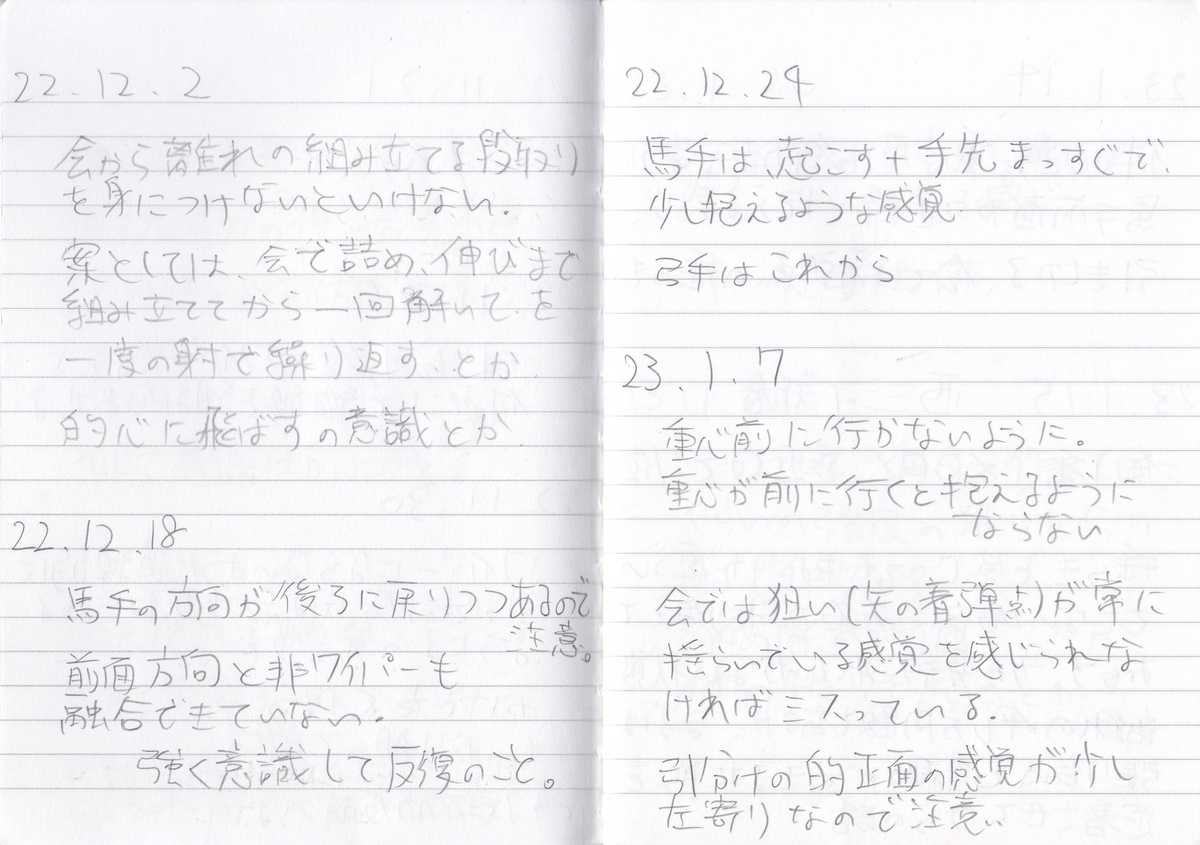 22.12.2
会から離れの組み立てる段取り
を身につけないといけない。
案としては、会で詰め、伸びまで
組み立ててから一回解いて、を
一度の射で繰り返す、とか
的心に飛ばすの意識とか
22.12.18
馬手の方向が後ろに戻りつつあるので
注意。
前面方向と非ワイパーも
融合できていない。
強く意識して反復のこと。
22.12.24
馬手は、起こす+手先まっすぐで、
少し抱えるような感覚
弓手はこれから
23.1.7
重心前に行かないように。
重心が前に行くと抱えるように
ならない
会では狙い(矢の着弾点)が常に
揺らいでいる感覚を感じられな
ければミスっている.
引分けの的正面の感覚が少し
左寄りなので注意、